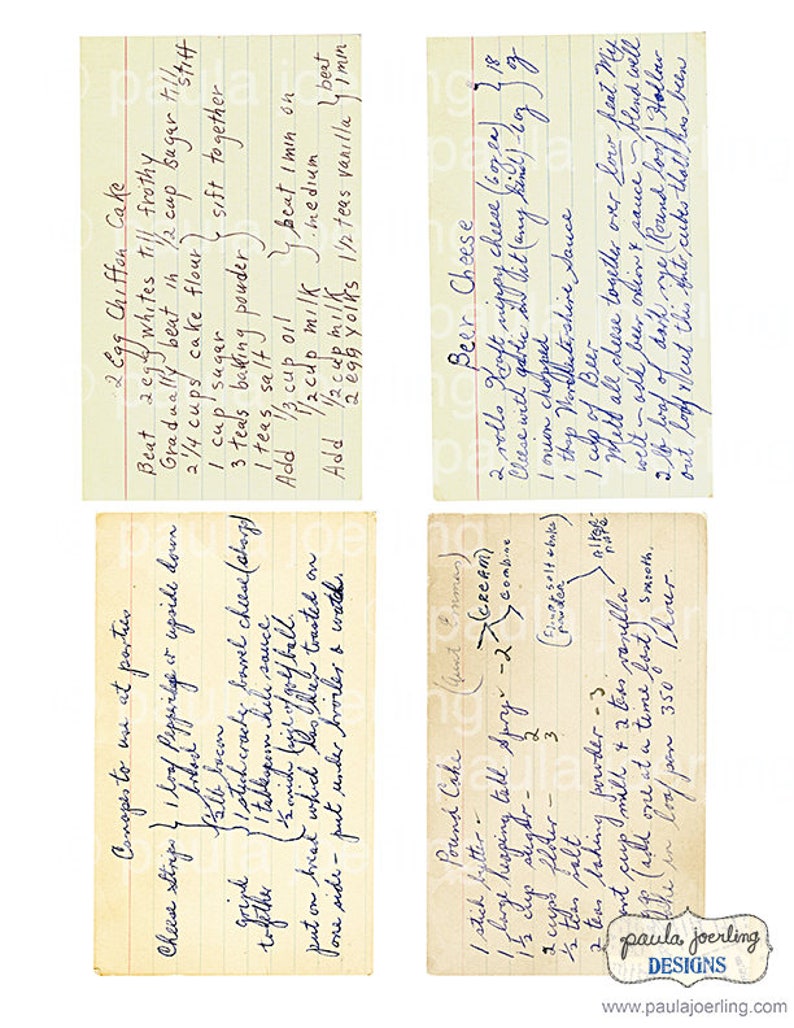 2 Egg Chiffon Cake
Beat 2 egg whites till frothy
Gradually beat in 1/2 cup sugar till stiff
2 1/4 cups cake flour
1 cup sugar
3 teas baking powder } sift together
1 teas salt
Add 1/3 cup oil } beat 1 min on
1/2 cup milk medium
Add 1/2 cup milk } beat
2 egg yolks 1 1/2 teas vanilla 1 min
Beer Cheese
2 rolls Kraft nippy cheese (6 oz ea) } 18
Cheese with garlic in it (any kind) - 6 oz } oz
1 onion chopped
1 tbsp Worcestershire Sauce
1 cup of Beer
Melt all cheese together over low heat Mix
well - add beer onion & sauce - blend well
2 lb loaf of dark rye (Round loaf) Hollow
out loaf & cut this into cubes that has been
Canapes to use at parties
Cheese Strips { 1 loaf Pepperidge upside down
bread
1/2 lb bacon
grind 1 stick cracker barrel cheese (sharp)
together 1 tablespoon chili sauce
1/2 onion (size of golf ball
put on bread which has been toasted on
one side - put under broiler & watch.
Pound Cake (Aunt Emmas)
1 stick butter -
1 large heaping tabl Spry - 2 (CREAM)
1 1/2 cup sugar - 2 combine
2 cups flour - 3
1/2 teas salt
2 teas baking powder - 3
cup milk & 2 teas vanilla
(add one at a time fast) smooth.
in loaf pan 350 1 hour.
paula joerling
DESIGNS
www.paulajoerling.com
© paula joerling